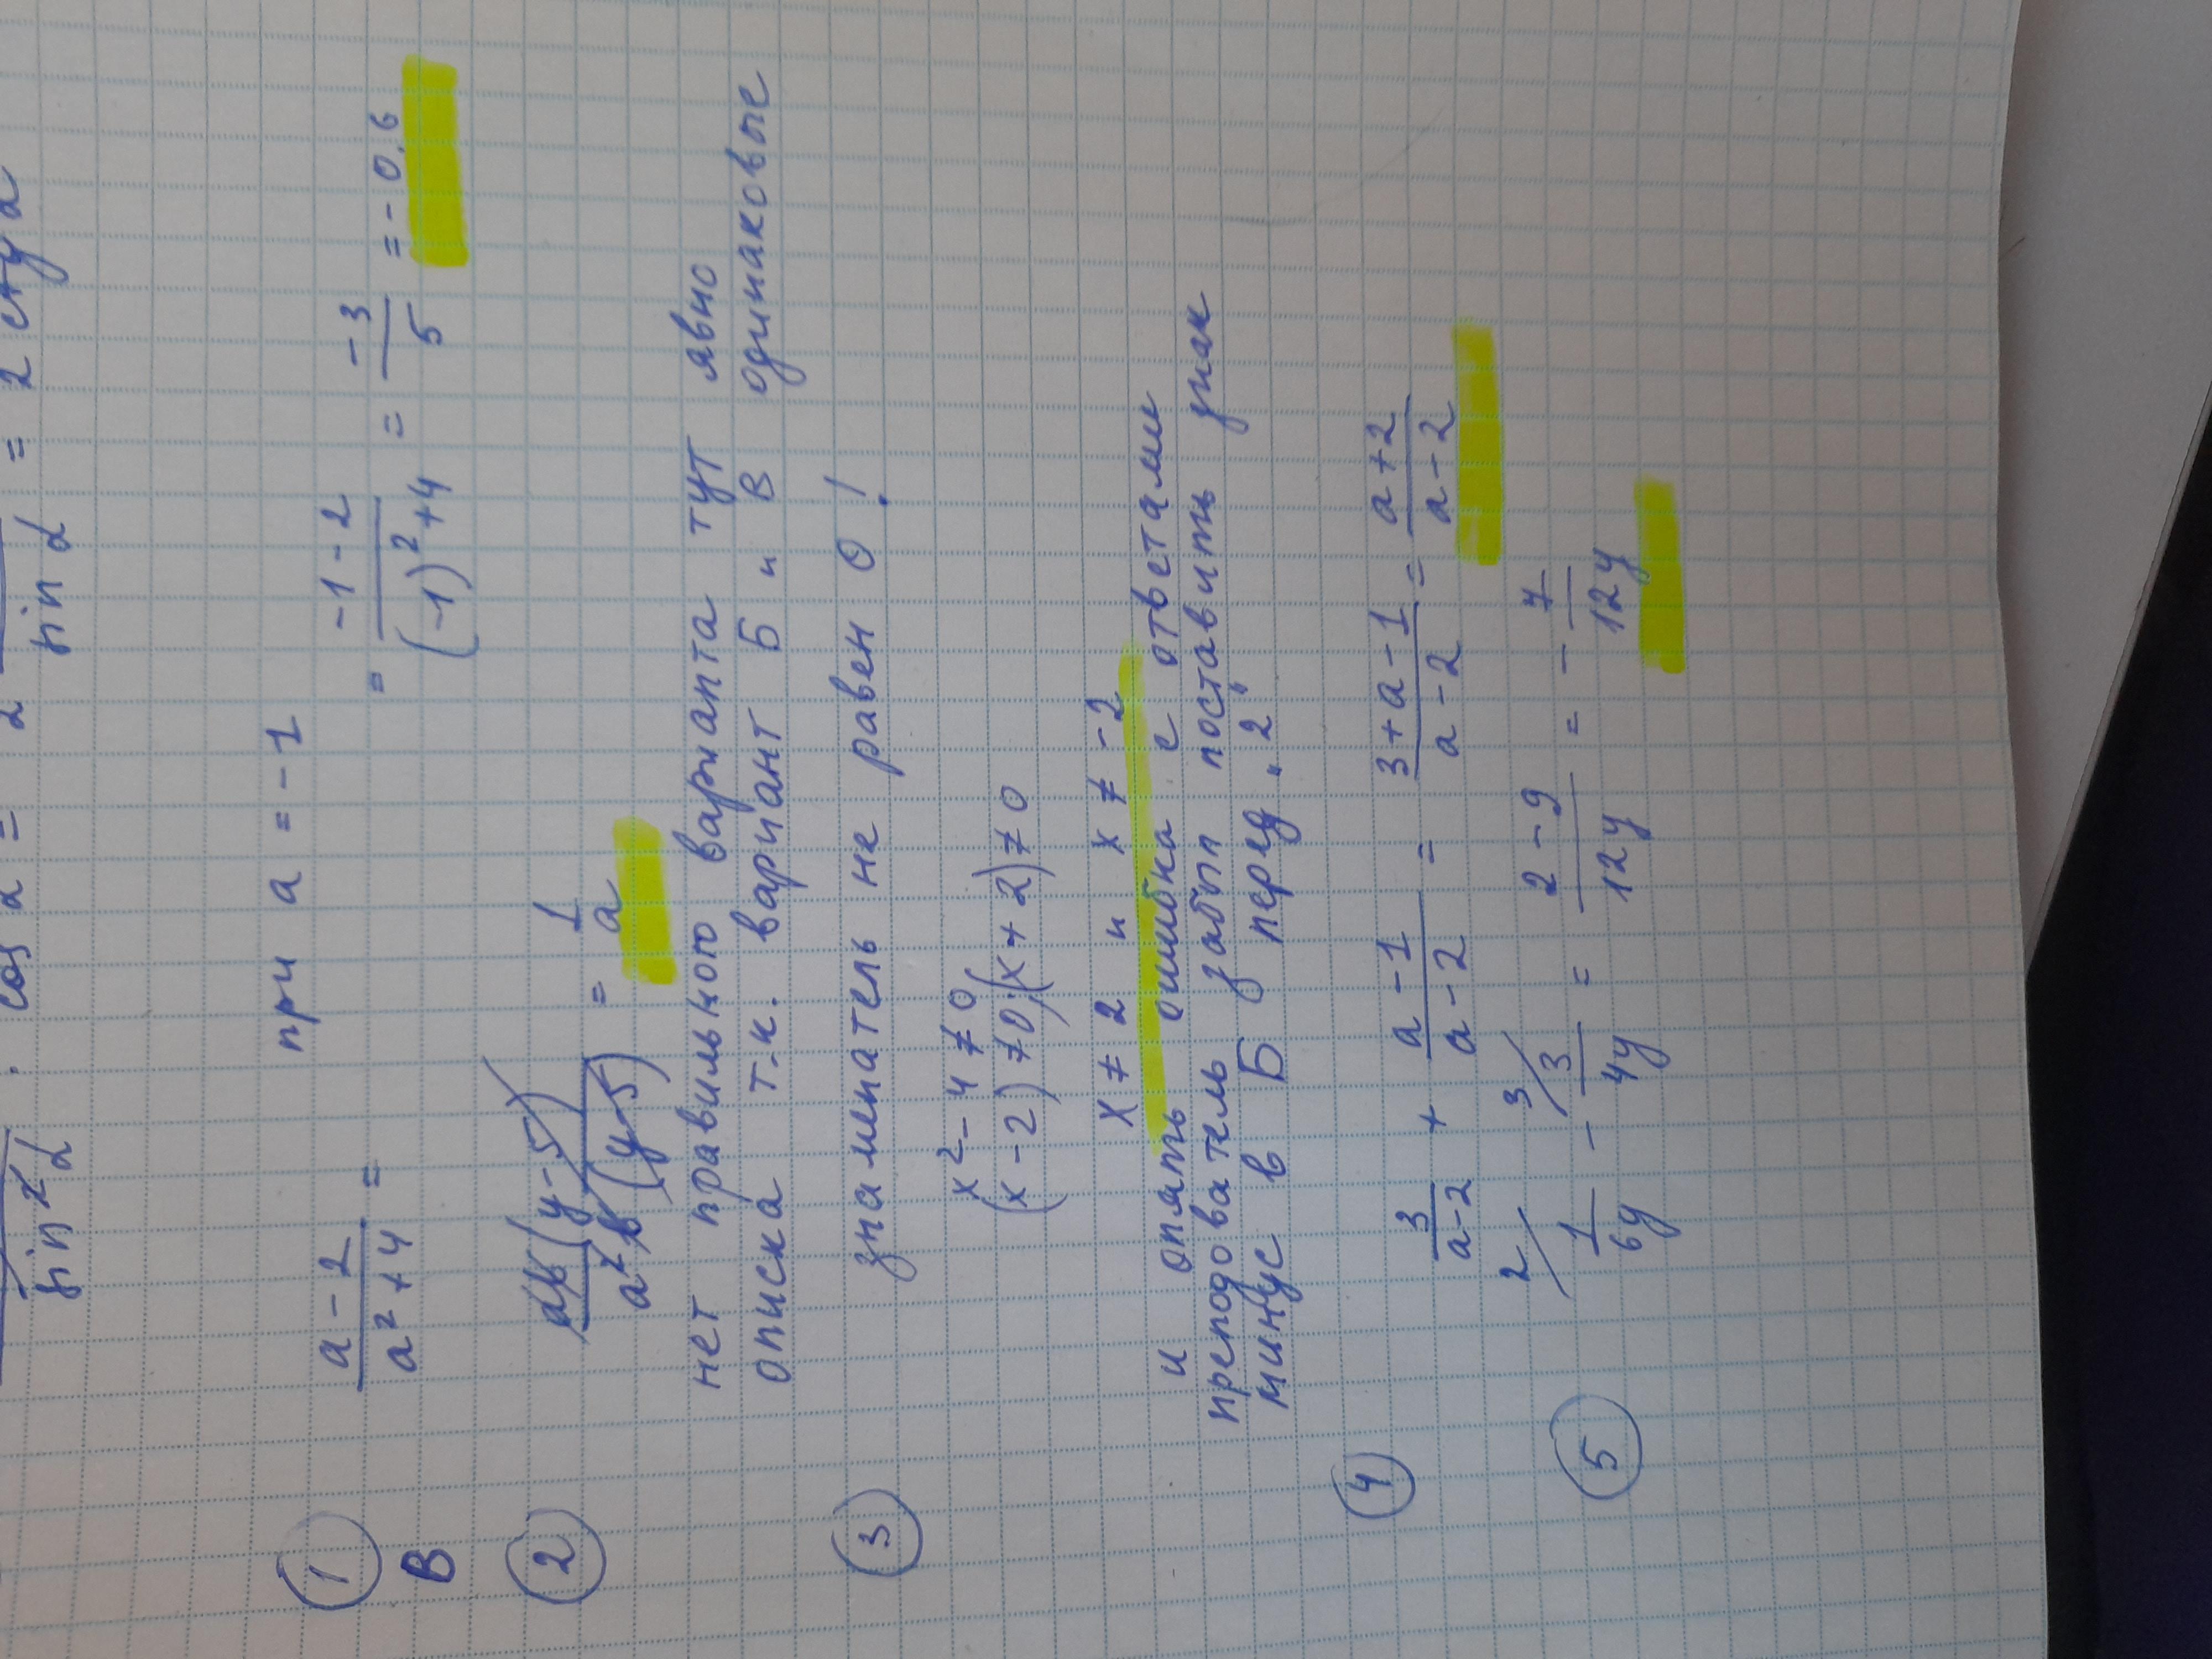 sin²α · cos α = 2 = 2 ctg α
sin α
① a - 2 / a² + 4 = при a = -1
= -1 - 2 / (-1)² + 4 = -3 / 5 = -0,6
В
② ab(y-5) / a²b(y-5) = 1 / a
нет правильного варианта тут явно
описка т.к. вариант Б и В одинаковые
③ знаменатель не равен 0!
x² - 4 ≠ 0
(x - 2) ≠ 0; (x + 2) ≠ 0
x ≠ 2 и x ≠ -2
и опять ошибка с ответами
преподователь забыл поставить знак
минус в Б перед „2"
④ 3 / a-2 + a - 1 / a - 2 = 3 + a - 1 / a - 2 = a + 2 / a - 2
⑤ 2/ 1 / 6y - 3/ 3 / 4y = 2 - 9 / 12y = - 7 / 12y